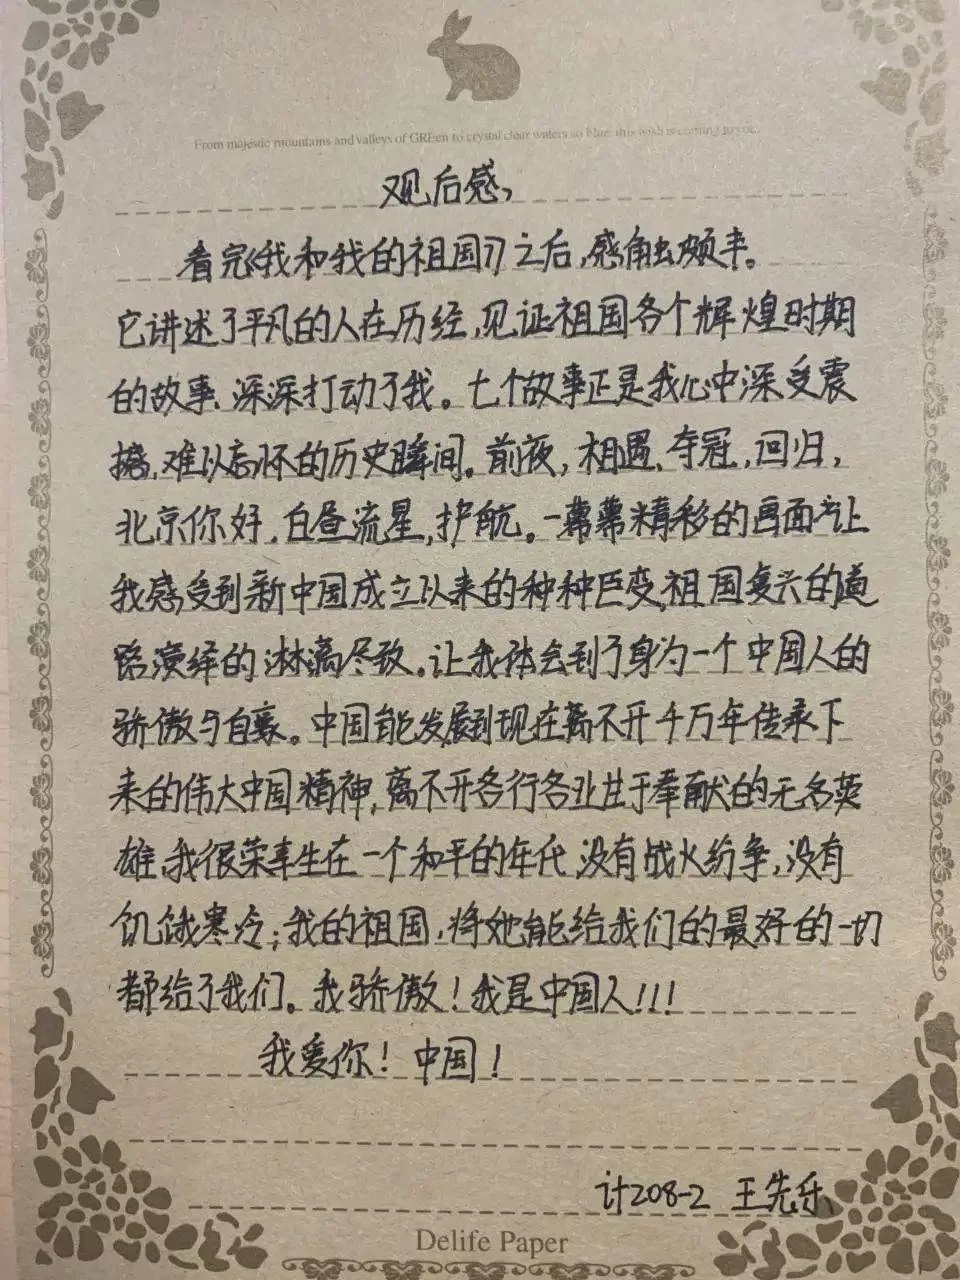 From majestic mountains and valleys of GREen to crystal clear waters so blue, this wish is coming to you.
观后感,
看完《我和我的祖国》之后,感触颇丰。
它讲述了平凡的人在历经,见证祖国各个辉煌时期
的故事、深深打动了我。七个故事正是我心中深受震
撼,难以忘怀的历史瞬间。前夜,相遇,夺冠,回归,
北京你好,白昼流星,护航。一幕幕精彩的画面让
我感受到新中国成立以来的种种巨变,祖国复兴的道
路演绎的淋漓尽致。让我体会到了身为一个中国人的
骄傲与自豪。中国能发展到现在离不开千万年传承下
来的伟大中国精神,离不开各行各业甘于奉献的无名英
雄,我很荣幸生在一个和平的年代,没有战火纷争,没有
饥饿寒冷;我的祖国,将她能给我们的最好的一切
都给了我们。我骄傲!我是中国人!!!
我爱你!中国!
计208-2 王先乐
Delife Paper